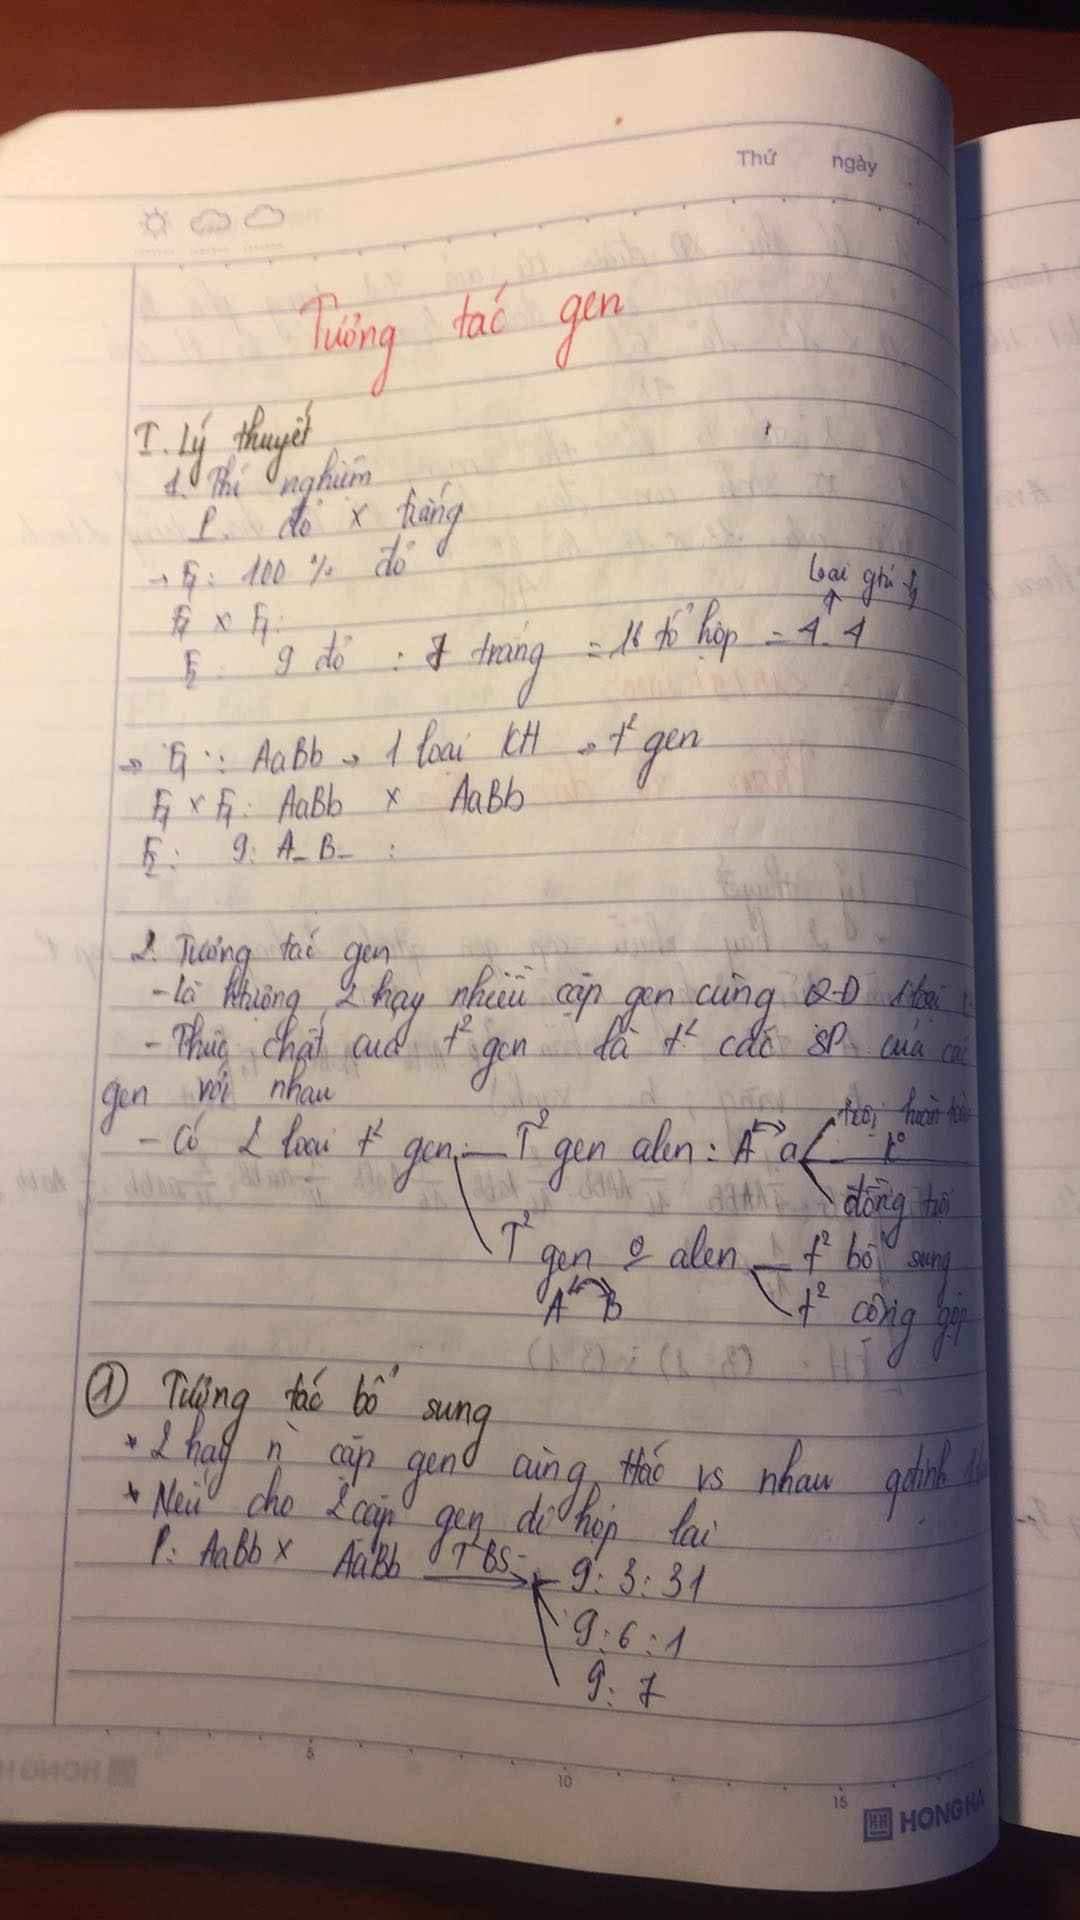 Thứ ngày
Tương tác gen
I. Lý thuyết
1. Thí nghiệm
P. đỏ x trắng
→ F1: 100 % đỏ
F1 x F1:
Loại gtử F1
F2: 9 đỏ : 7 trắng = 16 tổ hợp = 4.4
→ F1: AaBb → 1 loại KH → t² gen
F1 x F1: AaBb x AaBb
F2: 9: A_B_ :
2. Tương tác gen
- Là htượng 2 hay nhiều cặp gen cùng Q-D 1 loại
- Thực chất của t² gen là t² các SP của các
gen với nhau
- Có 2 loại t² gen: T² gen alen: A a trội hoàn toàn
k°
đồng trội
T² gen alen t² bổ sung
A B t² cộng gộp
① Tương tác bổ sung
* 2 hay n cặp gen cùng ttác vs nhau qđịnh
* Nếu cho 2 cặp gen dị hợp lai
P: AaBb x AaBb T²BS 9:3:31
9:6:1
9:7
5 10 15
HONG HA